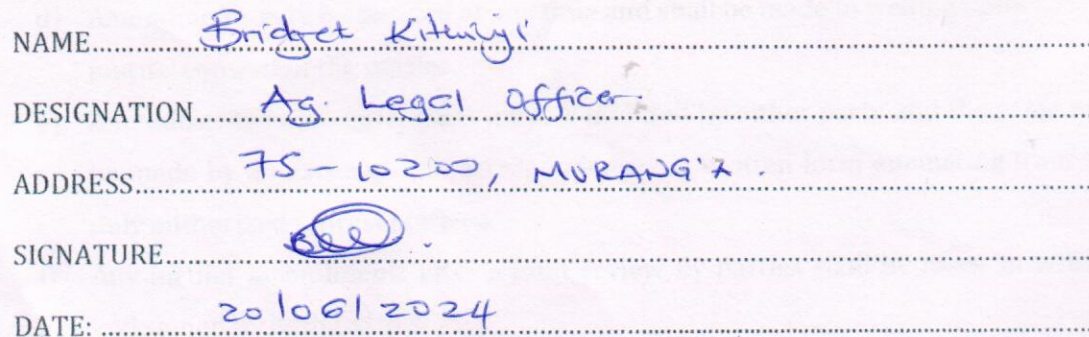 NAME Bridget Kithinji
DESIGNATION Ag. Legal Officer.
ADDRESS 75 - 10200, MURANG'A.
SIGNATURE
DATE: 20/06/2024